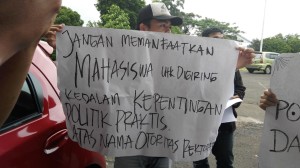 JANGAN MEMANFAATKAN
MAHASISWA UTK DIGIRING
KEDALAM KEPENTINGAN
POLITIK PRAKTIS
ATAS NAMA OTORITAS REKTORAT
PO
DA